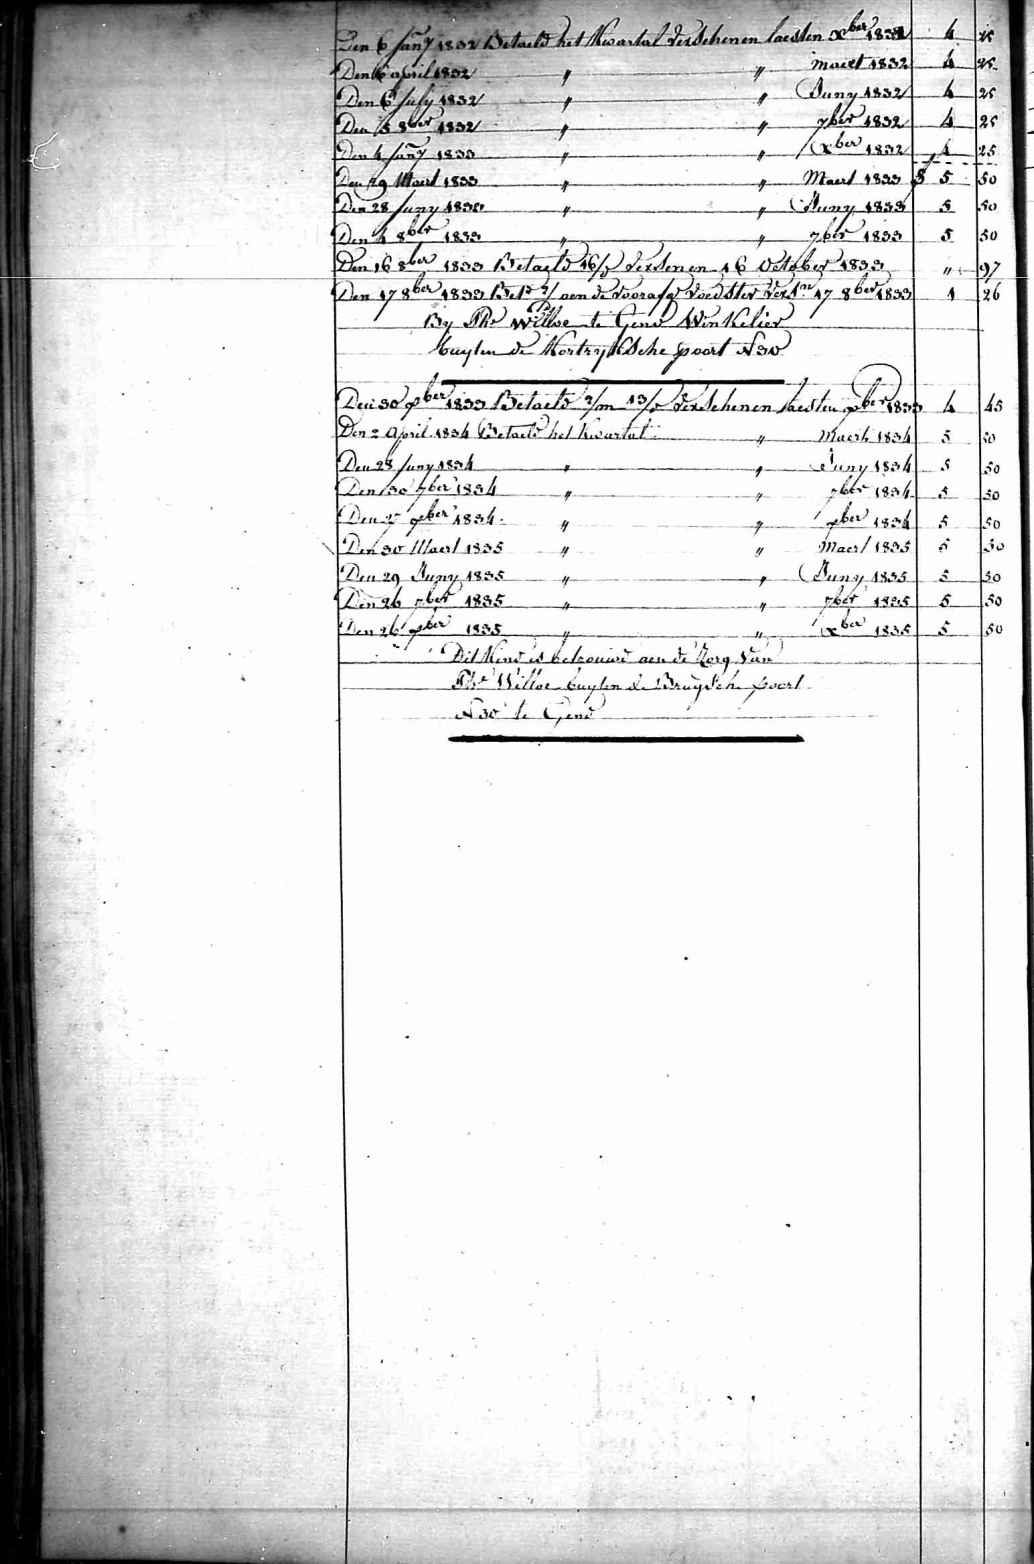 Den 6 Jany 1832 Betaeld het Kwartal verschenen laesten Xber 1831 4 25
Den 6 april 1832 " " maert 1832 4 25
Den 6 July 1832 " " Juny 1832 4 25
Den 5 8ber 1832 " " 7ber 1832 4 25
Den 4 Jany 1833 " " Xber 1832 4 25
Den 29 Maert 1833 " " Maert 1833 5 50
Den 28 Juny 1833 " " Juny 1833 5 50
Den 4 8ber 1833 " " 7ber 1833 5 50
Den 16 8ber 1833 Betaeld 16/ verschenen 16 October 1833 " 97
Den 17 8ber 1833 aen de voedster 17 8ber 1833 1 26
By Phe Willoe te Gend Winkelier
buyten de Kortryksche poort N 30
Den 30 1833 Betaeld 2/m 13/ verschenen laesten 1833 4 45
Den 2 April 1834 Betaeld het Kwartal " Maert 1834 5 50
Den 28 Juny 1834 " " Juny 1834 5 50
Den 30 7ber 1834 " " 7ber 1834 5 50
Den 27 1834 " " 1834 5 50
Den 30 Maert 1835 " " Maert 1835 5 50
Den 29 Juny 1835 " " Juny 1835 5 50
Den 26 7ber 1835 " " 7ber 1835 5 50
Den 26 1835 " " Xber 1835 5 50
Dit Kind is betrouwd aen de Zorg van
Phe Willoe buyten de Brugsche poort
N 30 te Gend